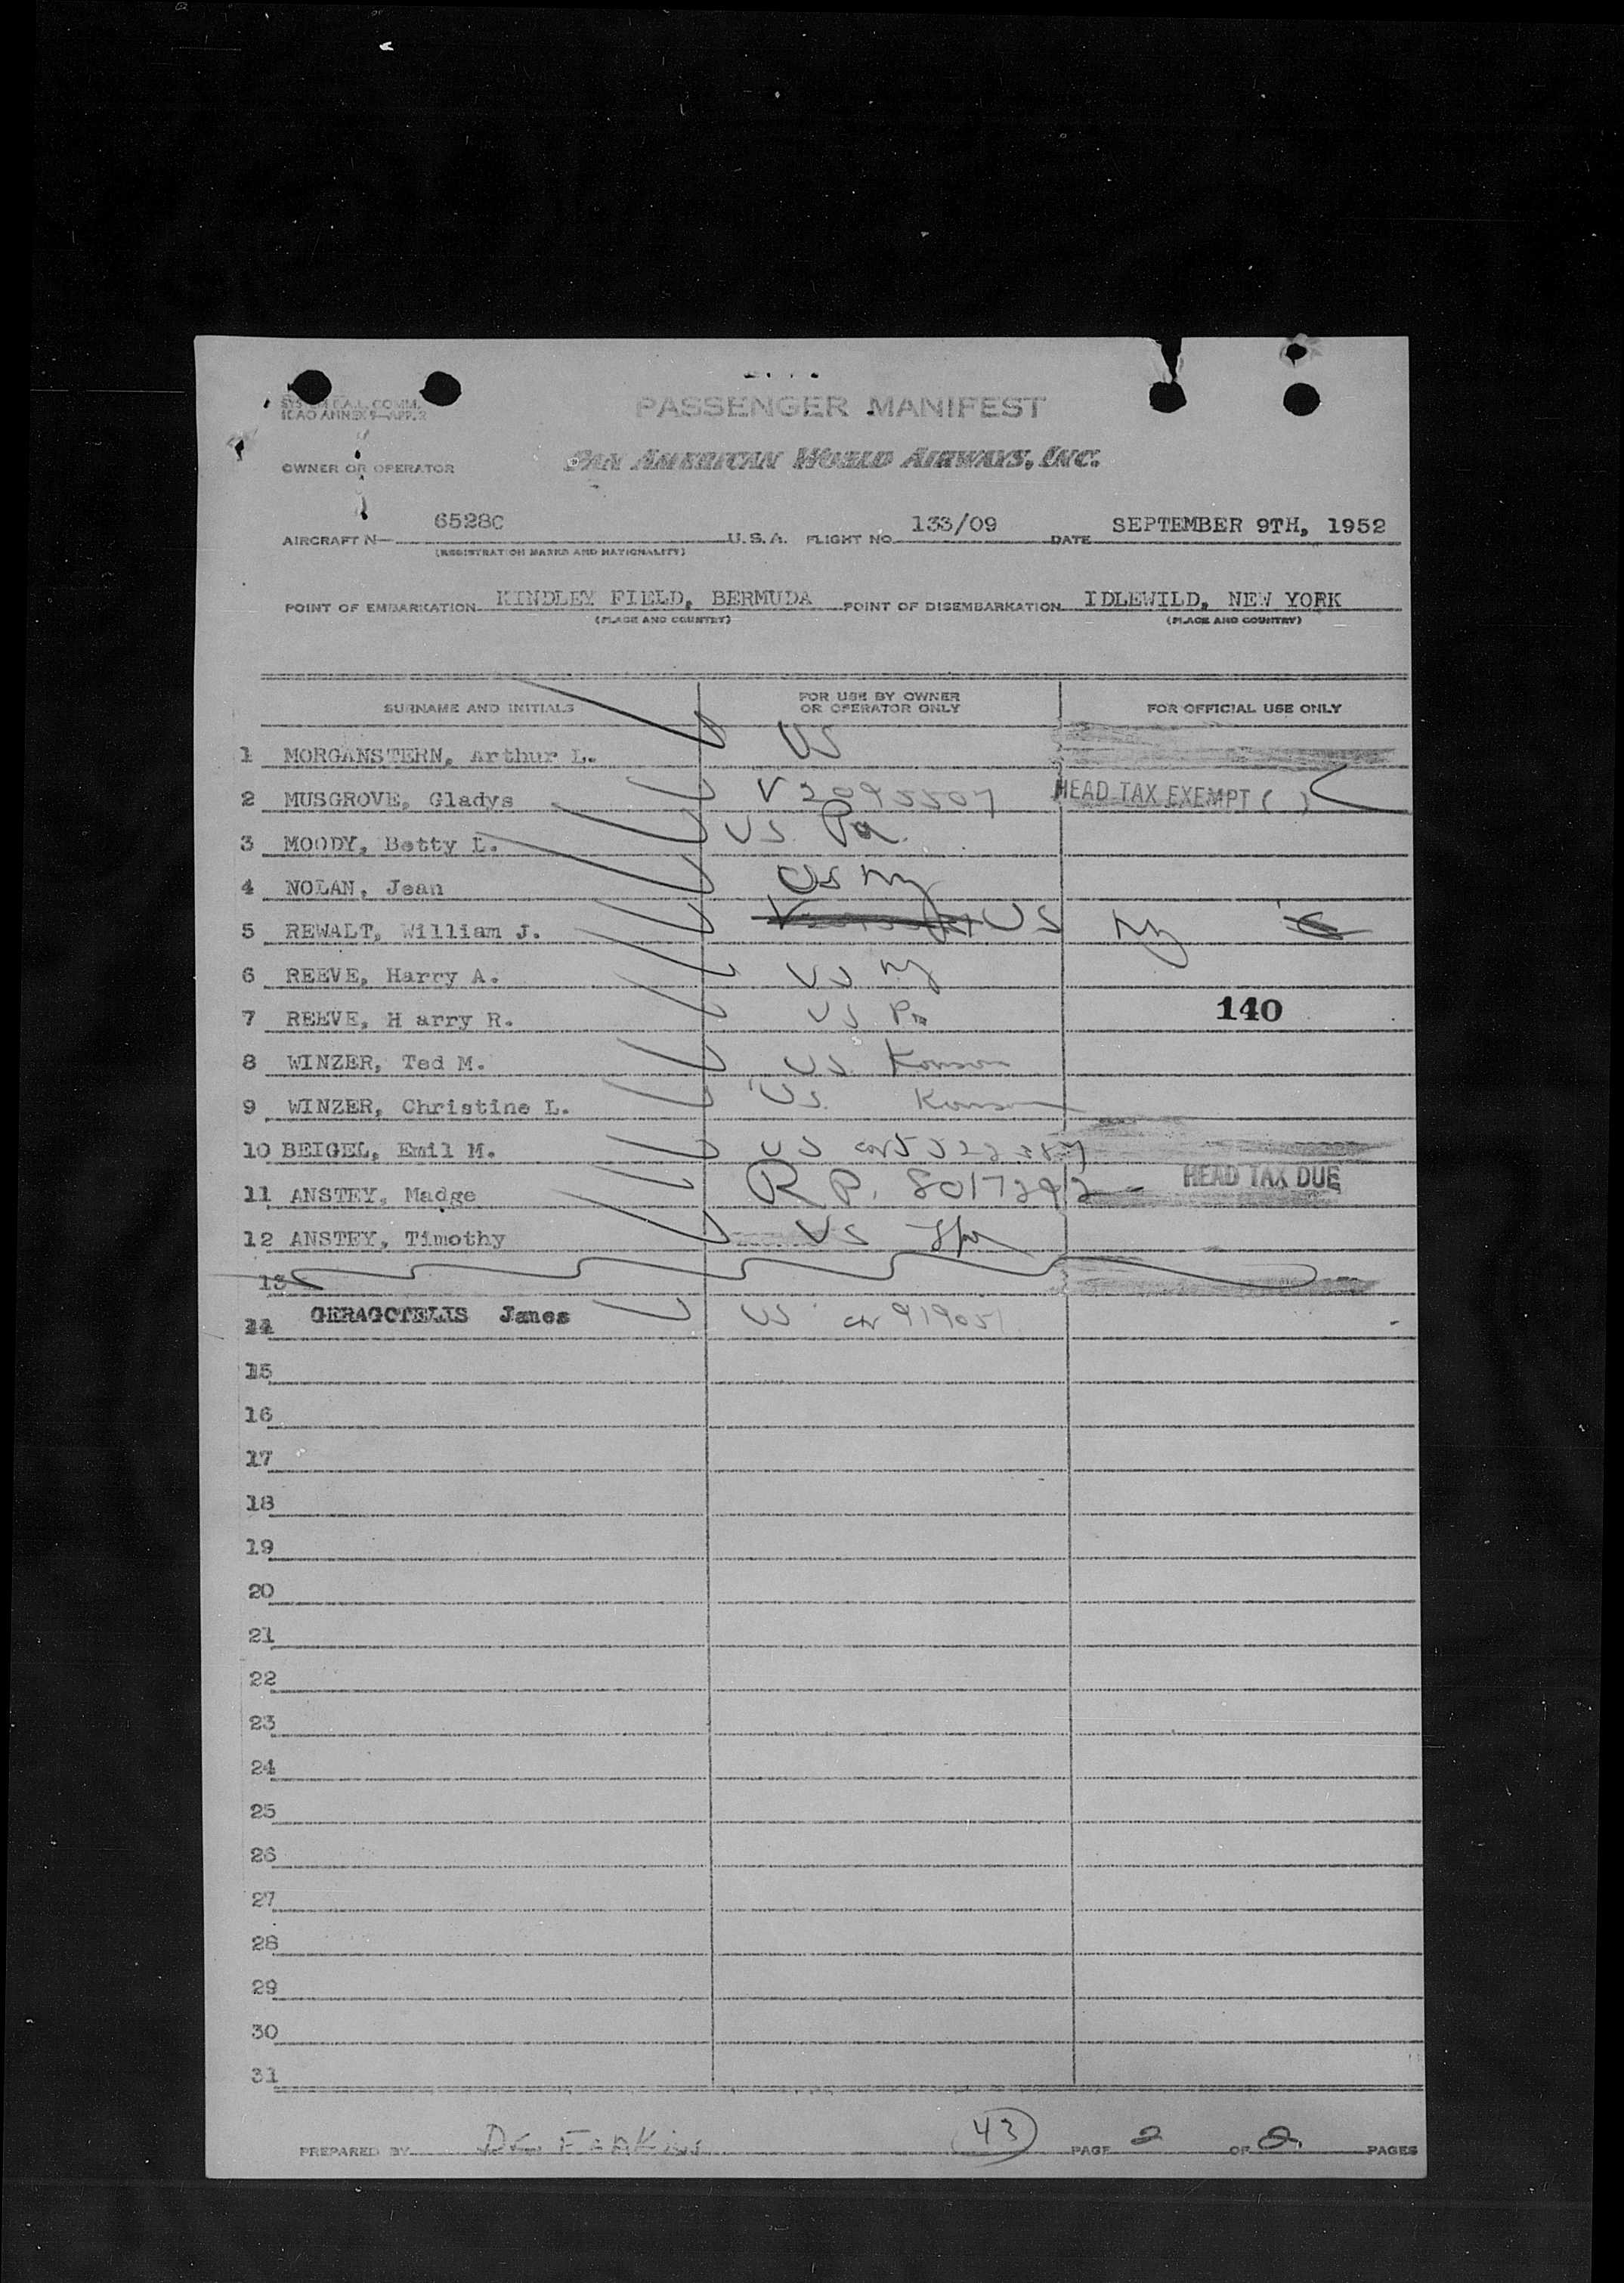 SYSTEM F.A.L. COMM.
ICAO ANNEX 9—APP. 2
PASSENGER MANIFEST
OWNER OR OPERATOR PAN AMERICAN WORLD AIRWAYS, INC.
AIRCRAFT N— 6528C U.S.A. FLIGHT NO. 133/09 DATE SEPTEMBER 9TH, 1952
(REGISTRATION MARKS AND NATIONALITY)
POINT OF EMBARKATION KINDLEY FIELD, BERMUDA POINT OF DISEMBARKATION IDLEWILD, NEW YORK
(PLACE AND COUNTRY) (PLACE AND COUNTRY)
SURNAME AND INITIALS FOR USE BY OWNER OR OPERATOR ONLY FOR OFFICIAL USE ONLY
1 MORGANSTERN, Arthur L. US
2 MUSGROVE, Gladys V 2095507 HEAD TAX EXEMPT ( )
3 MOODY, Betty L. US Pa.
4 NOLAN, Jean US NY
5 REWALT, William J. US NY
6 REEVE, Harry A. US NY
7 REEVE, H arry R. US Pa 140
8 WINZER, Ted M. US Kansas
9 WINZER, Christine L. US Kansas
10 BEIGEL, Emil M. US
11 ANSTEY, Madge RP. 8017292 HEAD TAX DUE
12 ANSTEY, Timothy US
13
14 GERAGOTELIS James US 919051
15
16
17
18
19
20
21
22
23
24
25
26
27
28
29
30
31
PREPARED BY 43 PAGE 2 OF 2 PAGES